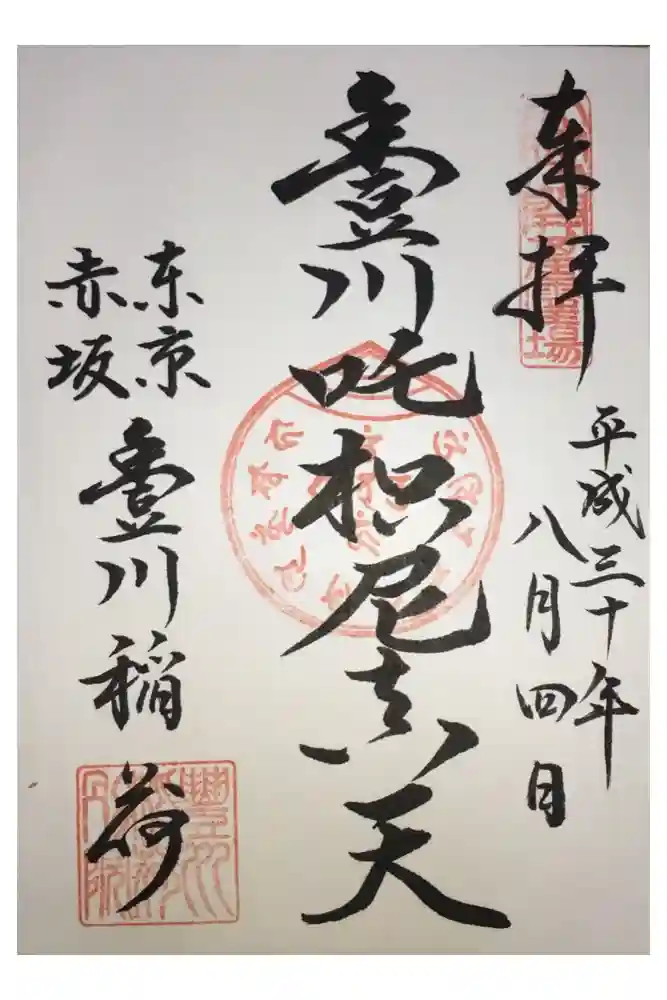 奉拝
平成三十年
八月四日
豊川吒枳尼真天
東京
赤坂
豊川稲荷